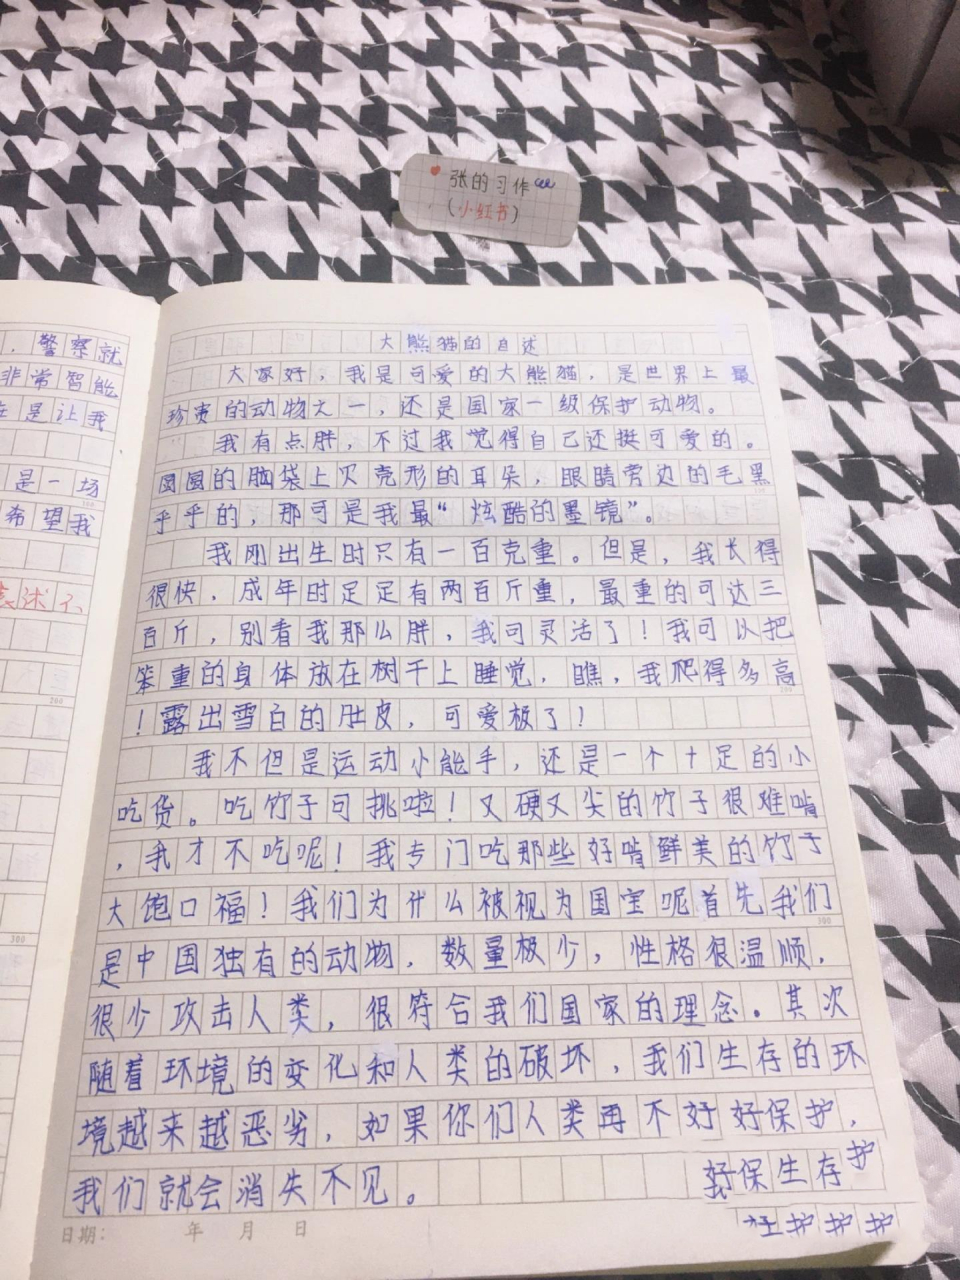 张的习作
(小红书)
，警察就
非常智能
在是让我
是一场
希望我
大熊猫的自述
大家好，我是可爱的大熊猫，是世界上最
珍贵的动物之一，还是国家一级保护动物。
我有点胖，不过我觉得自己还挺可爱的。
圆圆的脑袋上贝壳形的耳朵，眼睛旁边的毛黑
乎乎的，那可是我最“炫酷的墨镜”。
我刚出生时只有一百克重。但是，我长得
很快，成年时足足有两百斤重，最重的可达三
百斤，别看我那么胖，我可灵活了！我可以把
笨重的身体放在树干上睡觉，瞧，我爬得多高
！露出雪白的肚皮，可爱极了！
我不但是运动小能手，还是一个十足的小
吃货。吃竹子可挑啦！又硬又尖的竹子很难啃
，我才不吃呢！我专门吃那些好啃鲜美的竹子
大饱口福！我们为什么被视为国宝呢首先我们
是中国独有的动物，数量极少，性格很温顺，
很少攻击人类，很符合我们国家的理念。其次
随着环境的变化和人类的破坏，我们生存的环
境越来越恶劣，如果你们人类再不好好保护，
我们就会消失不见。
好保生存护
护护护
日期： 年 月 日